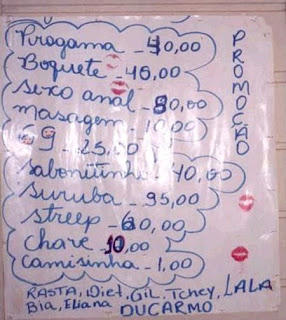 Programa - 40,00
Boquete - 40,00
Sexo anal - 80,00
Masagem - 10,00
69 - 25,50
Sabonitinho - 40,00
Suruba - 95,00
Streep - 60,00
Chave - 10,00
Camisinha - 1,00
PROMOCÃO
RASTA, Diet, GiL, Tchey, LALA
Bia, Eliana DUCARMO